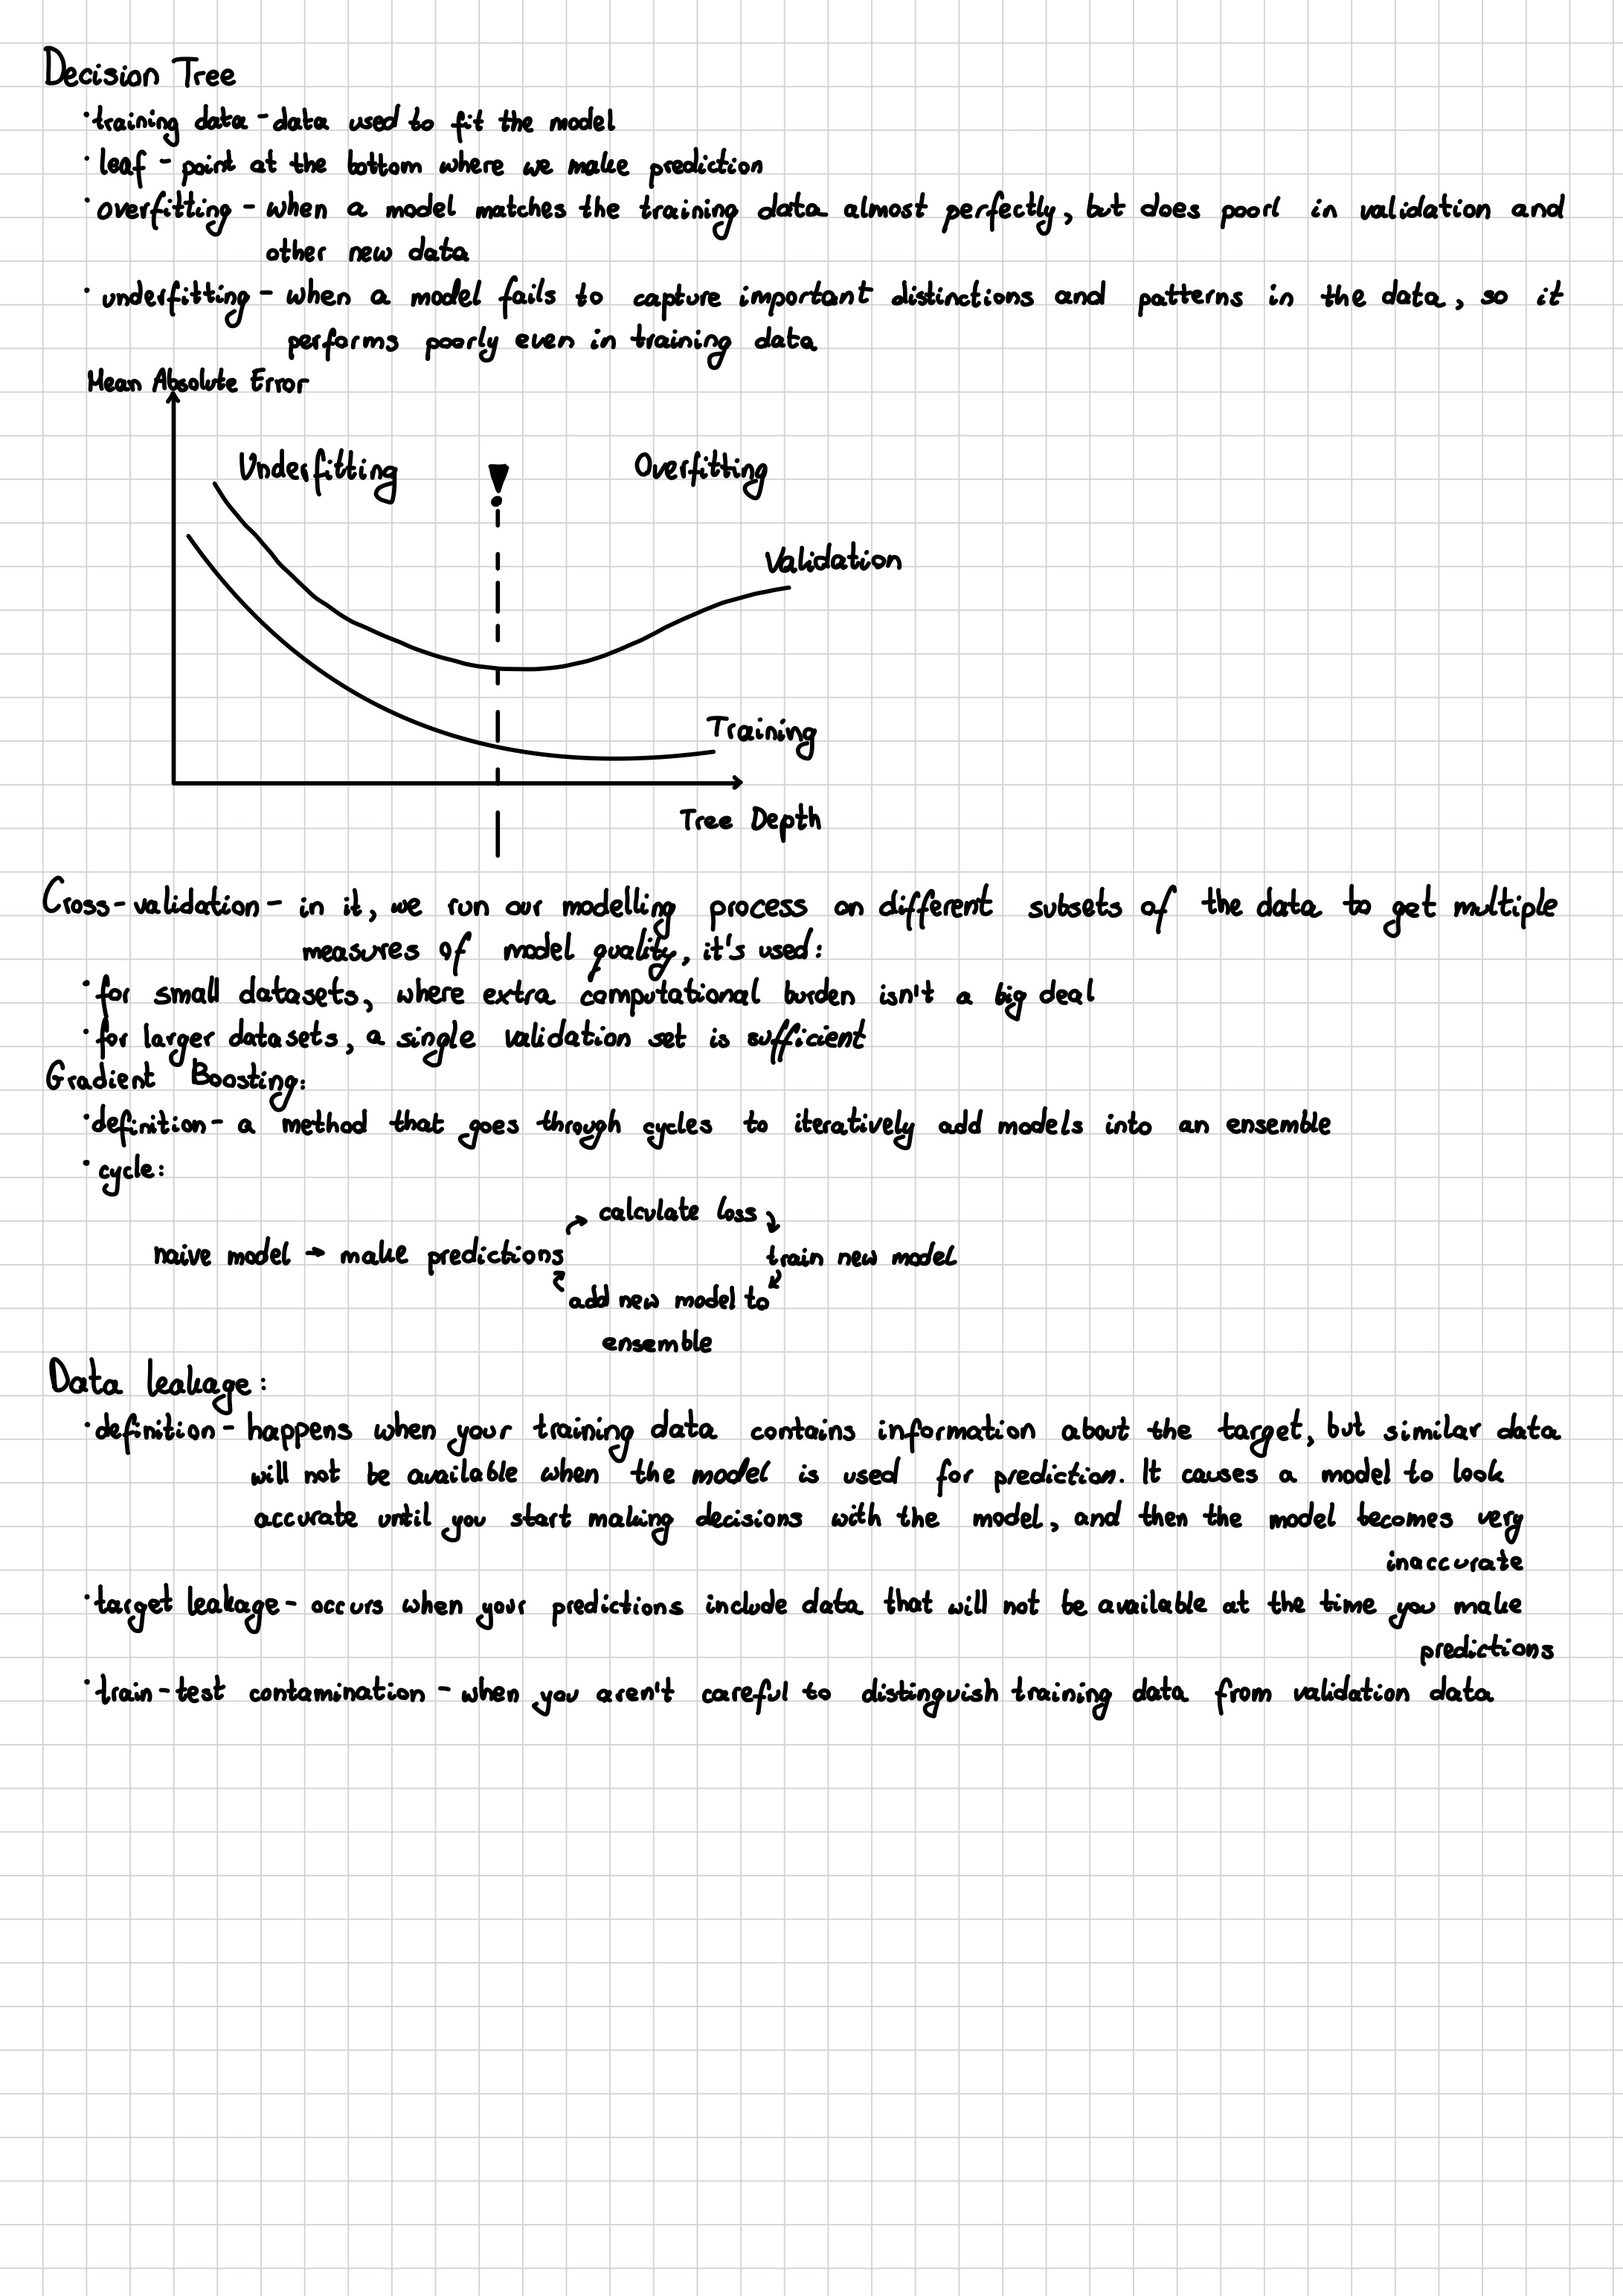 Decision Tree
· training data - data used to fit the model
· leaf - point at the bottom where we make prediction
· overfitting - when a model matches the training data almost perfectly, but does poorl in validation and
other new data
· underfitting - when a model fails to capture important distinctions and patterns in the data, so it
performs poorly even in training data
Mean Absolute Error
Underfitting
Overfitting
Validation
Training
Tree Depth
Cross-validation - in it, we run our modelling process on different subsets of the data to get multiple
measures of model quality, it's used:
· for small datasets, where extra computational burden isn't a big deal
· for larger datasets, a single validation set is sufficient
Gradient Boosting:
· definition - a method that goes through cycles to iteratively add models into an ensemble
· cycle:
calculate loss
naive model → make predictions train new model
add new model to
ensemble
Data leakage:
· definition - happens when your training data contains information about the target, but similar data
will not be available when the model is used for prediction. It causes a model to look
accurate until you start making decisions with the model, and then the model becomes very
inaccurate
· target leakage - occurs when your predictions include data that will not be available at the time you make
predictions
· train-test contamination - when you aren't careful to distinguish training data from validation data